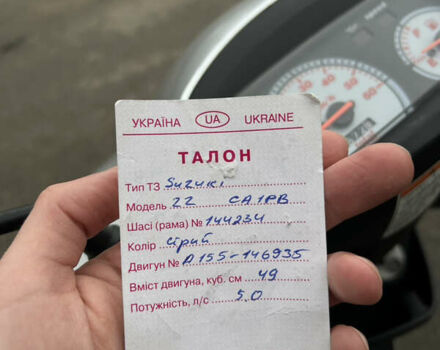 УКРАЇНА UA UKRAINE
ТАЛОН
Тип ТЗ Suzuki
Модель ZZ CA1PB
Шасі (рама) № 144234
Колір сірий
Двигун № A155-146935
Вміст двигуна, куб. см 49
Потужність, л/с 5.0